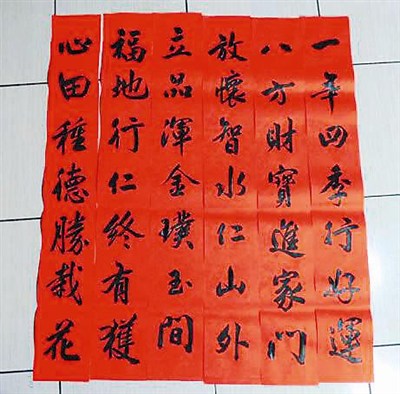 一年四季行好運
八方財寶進家門
放懷智水仁山外
立品渾金璞玉間
福地行仁終有獲
心田種德勝栽花